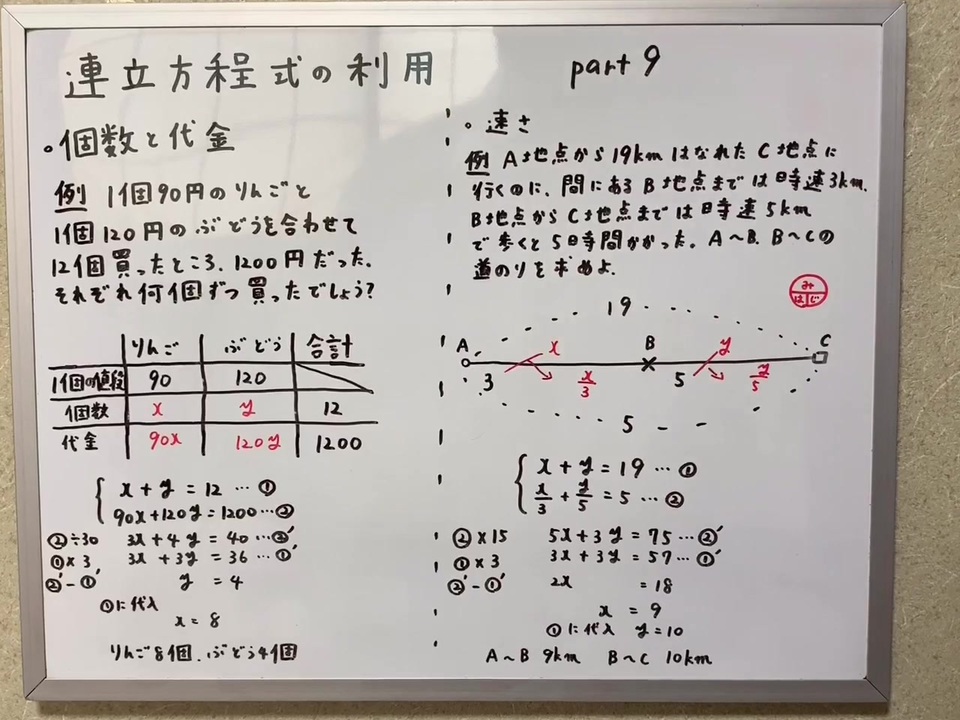 連立方程式の利用 part 9
。個数と代金
例 1個90円のりんごと
1個120円のぶどうを合わせて
12個買ったところ、1200円だった。
それぞれ何個ずつ買ったでしょう?
りんご ぶどう 合計
1個の値段 90 120
個数 x y 12
代金 90x 120y 1200
x + y = 12 … ①
90x+120y=1200…②
②÷30 3x+4y=40…②'
①×3 3x+3y=36…①'
②'-①' y = 4
①に代入
x = 8
りんご8個、ぶどう4個
。速さ
例 A地点から19kmはなれたC地点に
行くのに、間にあるB地点までは時速3km、
B地点からC地点までは時速5km
で歩くと5時間かかった。A~B、B~Cの
道のりを求めよ。
み
は じ
19
A x B y C
3 x/3 5 y/5
5
x + y = 19 … ①
x/3 + y/5 = 5 … ②
②×15 5x+3y=75…②'
①×3 3x+3y=57…①'
②'-①' 2x = 18
x = 9
①に代入 y=10
A~B 9km B~C 10km